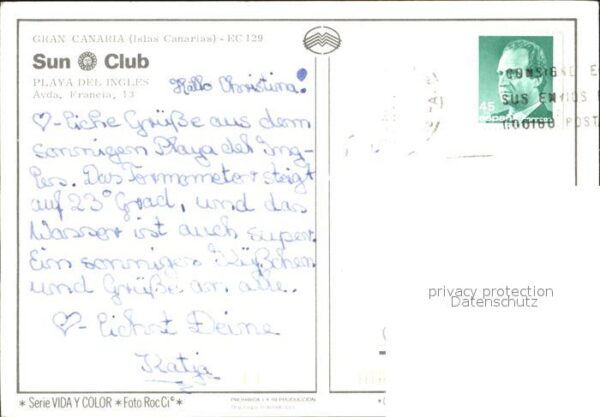 GRAN CANARIA (Islas Canarias) - EC 129
Sun Club
PLAYA DEL INGLES
Avda. Francia, 13
Hallo Christina!
♡-liche Grüße aus dem
sonnigen Playa del Ing-
les. Das Termometer steigt
auf 23° Grad, und das
Wasser ist auch super.
Ein sonniges Küßchen
und Grüße an alle.
♡-lichst Deine
Katja
* Serie VIDA Y COLOR * Foto Roc Cíᵃ *
PROHIBIDA LA REPRODUCCION
45
españa
CONSIGNE E
SUS ENVIOS
CODIGO POSTA
privacy protection
Datenschutz